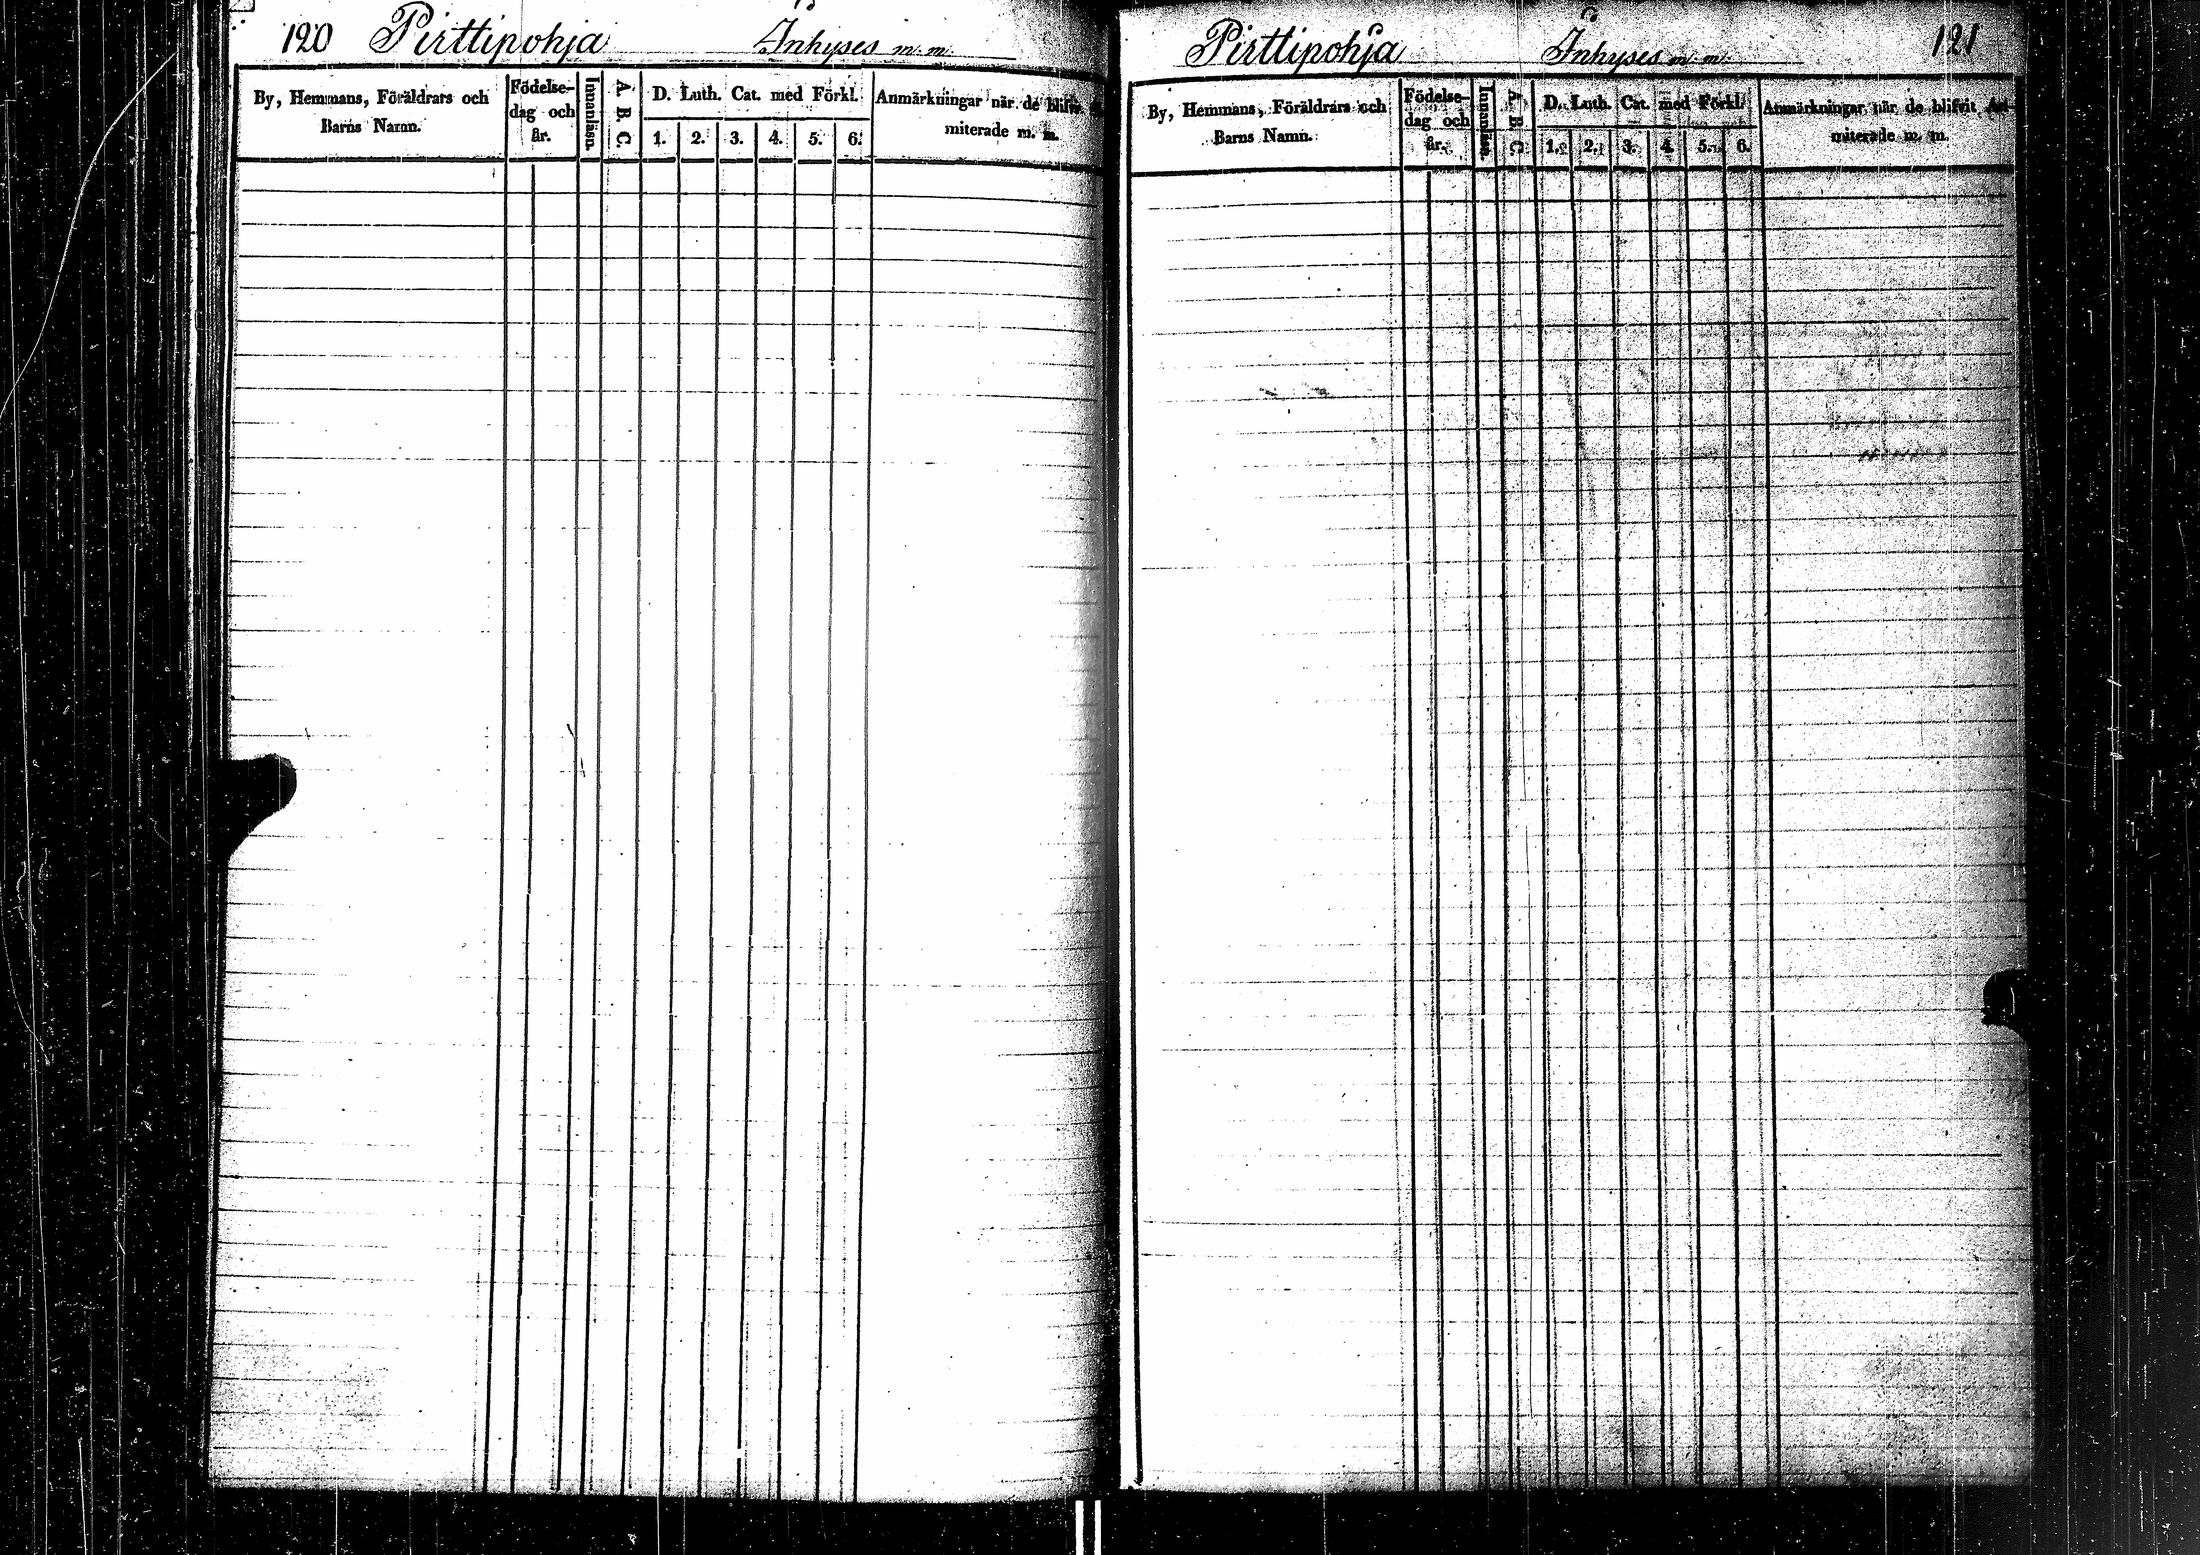 120 Pirttipohja Inhyses m. m.
By, Hemmans, Föräldrars och
Barns Namn.
Födelse-
dag och
år.
Innanläsn.
A. B. C.
D. Luth. Cat. med Förkl.
1. 2. 3. 4. 5. 6.
Anmärkningar när de blifvit
miterade m. m.
Pirttipohja Inhyses m. m. 121
By, Hemmans, Föräldrars och
Barns Namn.
Födelse-
dag och
år.
Innanläsn.
A. B. C.
D. Luth. Cat. med Förkl.
1. 2. 3. 4. 5. 6.
Anmärkningar när de blifvit Ad-
miterade m. m.